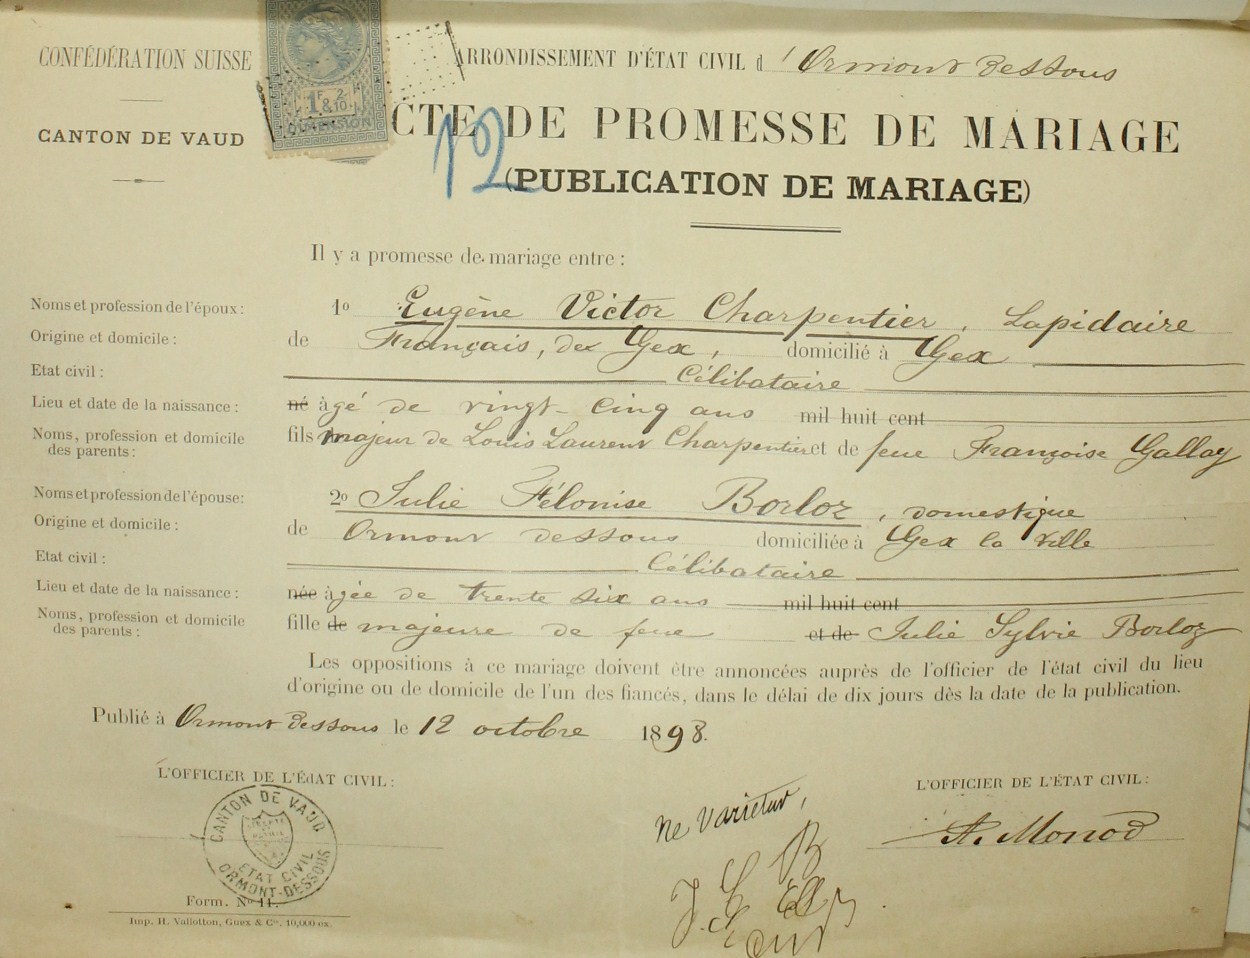 CONFÉDÉRATION SUISSE
CANTON DE VAUD
1F 2
& 10es
DIMENSION
ARRONDISSEMENT D'ÉTAT CIVIL d'Ormont Dessous
12
CTE DE PROMESSE DE MARIAGE
(PUBLICATION DE MARIAGE)
Il y a promesse de mariage entre :
Noms et profession de l'époux : 1º Eugène Victor Charpentier, Lapidaire
Origine et domicile : de Français, de Gex, domicilié à Gex
Etat civil : Célibataire
Lieu et date de la naissance : né âgé de vingt-cinq ans mil huit cent
Noms, profession et domicile des parents : fils majeur de Louis Laurent Charpentier et de feue Françoise Gallay
Noms et profession de l'épouse: 2º Julie Félonise Borloz, domestique
Origine et domicile : de Ormont dessous domiciliée à Gex la ville
Etat civil : Célibataire
Lieu et date de la naissance : née âgée de trente six ans mil huit cent
Noms, profession et domicile des parents : fille de majeure de feue et de Julie Sylvie Borloz
Les oppositions à ce mariage doivent être annoncées auprès de l'officier de l'état civil du lieu
d'origine ou de domicile de l'un des fiancés, dans le délai de dix jours dès la date de la publication.
Publié à Ormont Dessous le 12 octobre 1898.
L'OFFICIER DE L'ÉdAT CIVIL :
L'OFFICIER DE L'ÉTAT CIVIL :
CANTON DE VAUD
ETAT CIVIL
ORMONT-DESSOUS
Ne varietur,
A. Monod
J. C B
Form. Nº 11.
Imp. H. Vallotton, Guex & Cie, 10,000 ex.